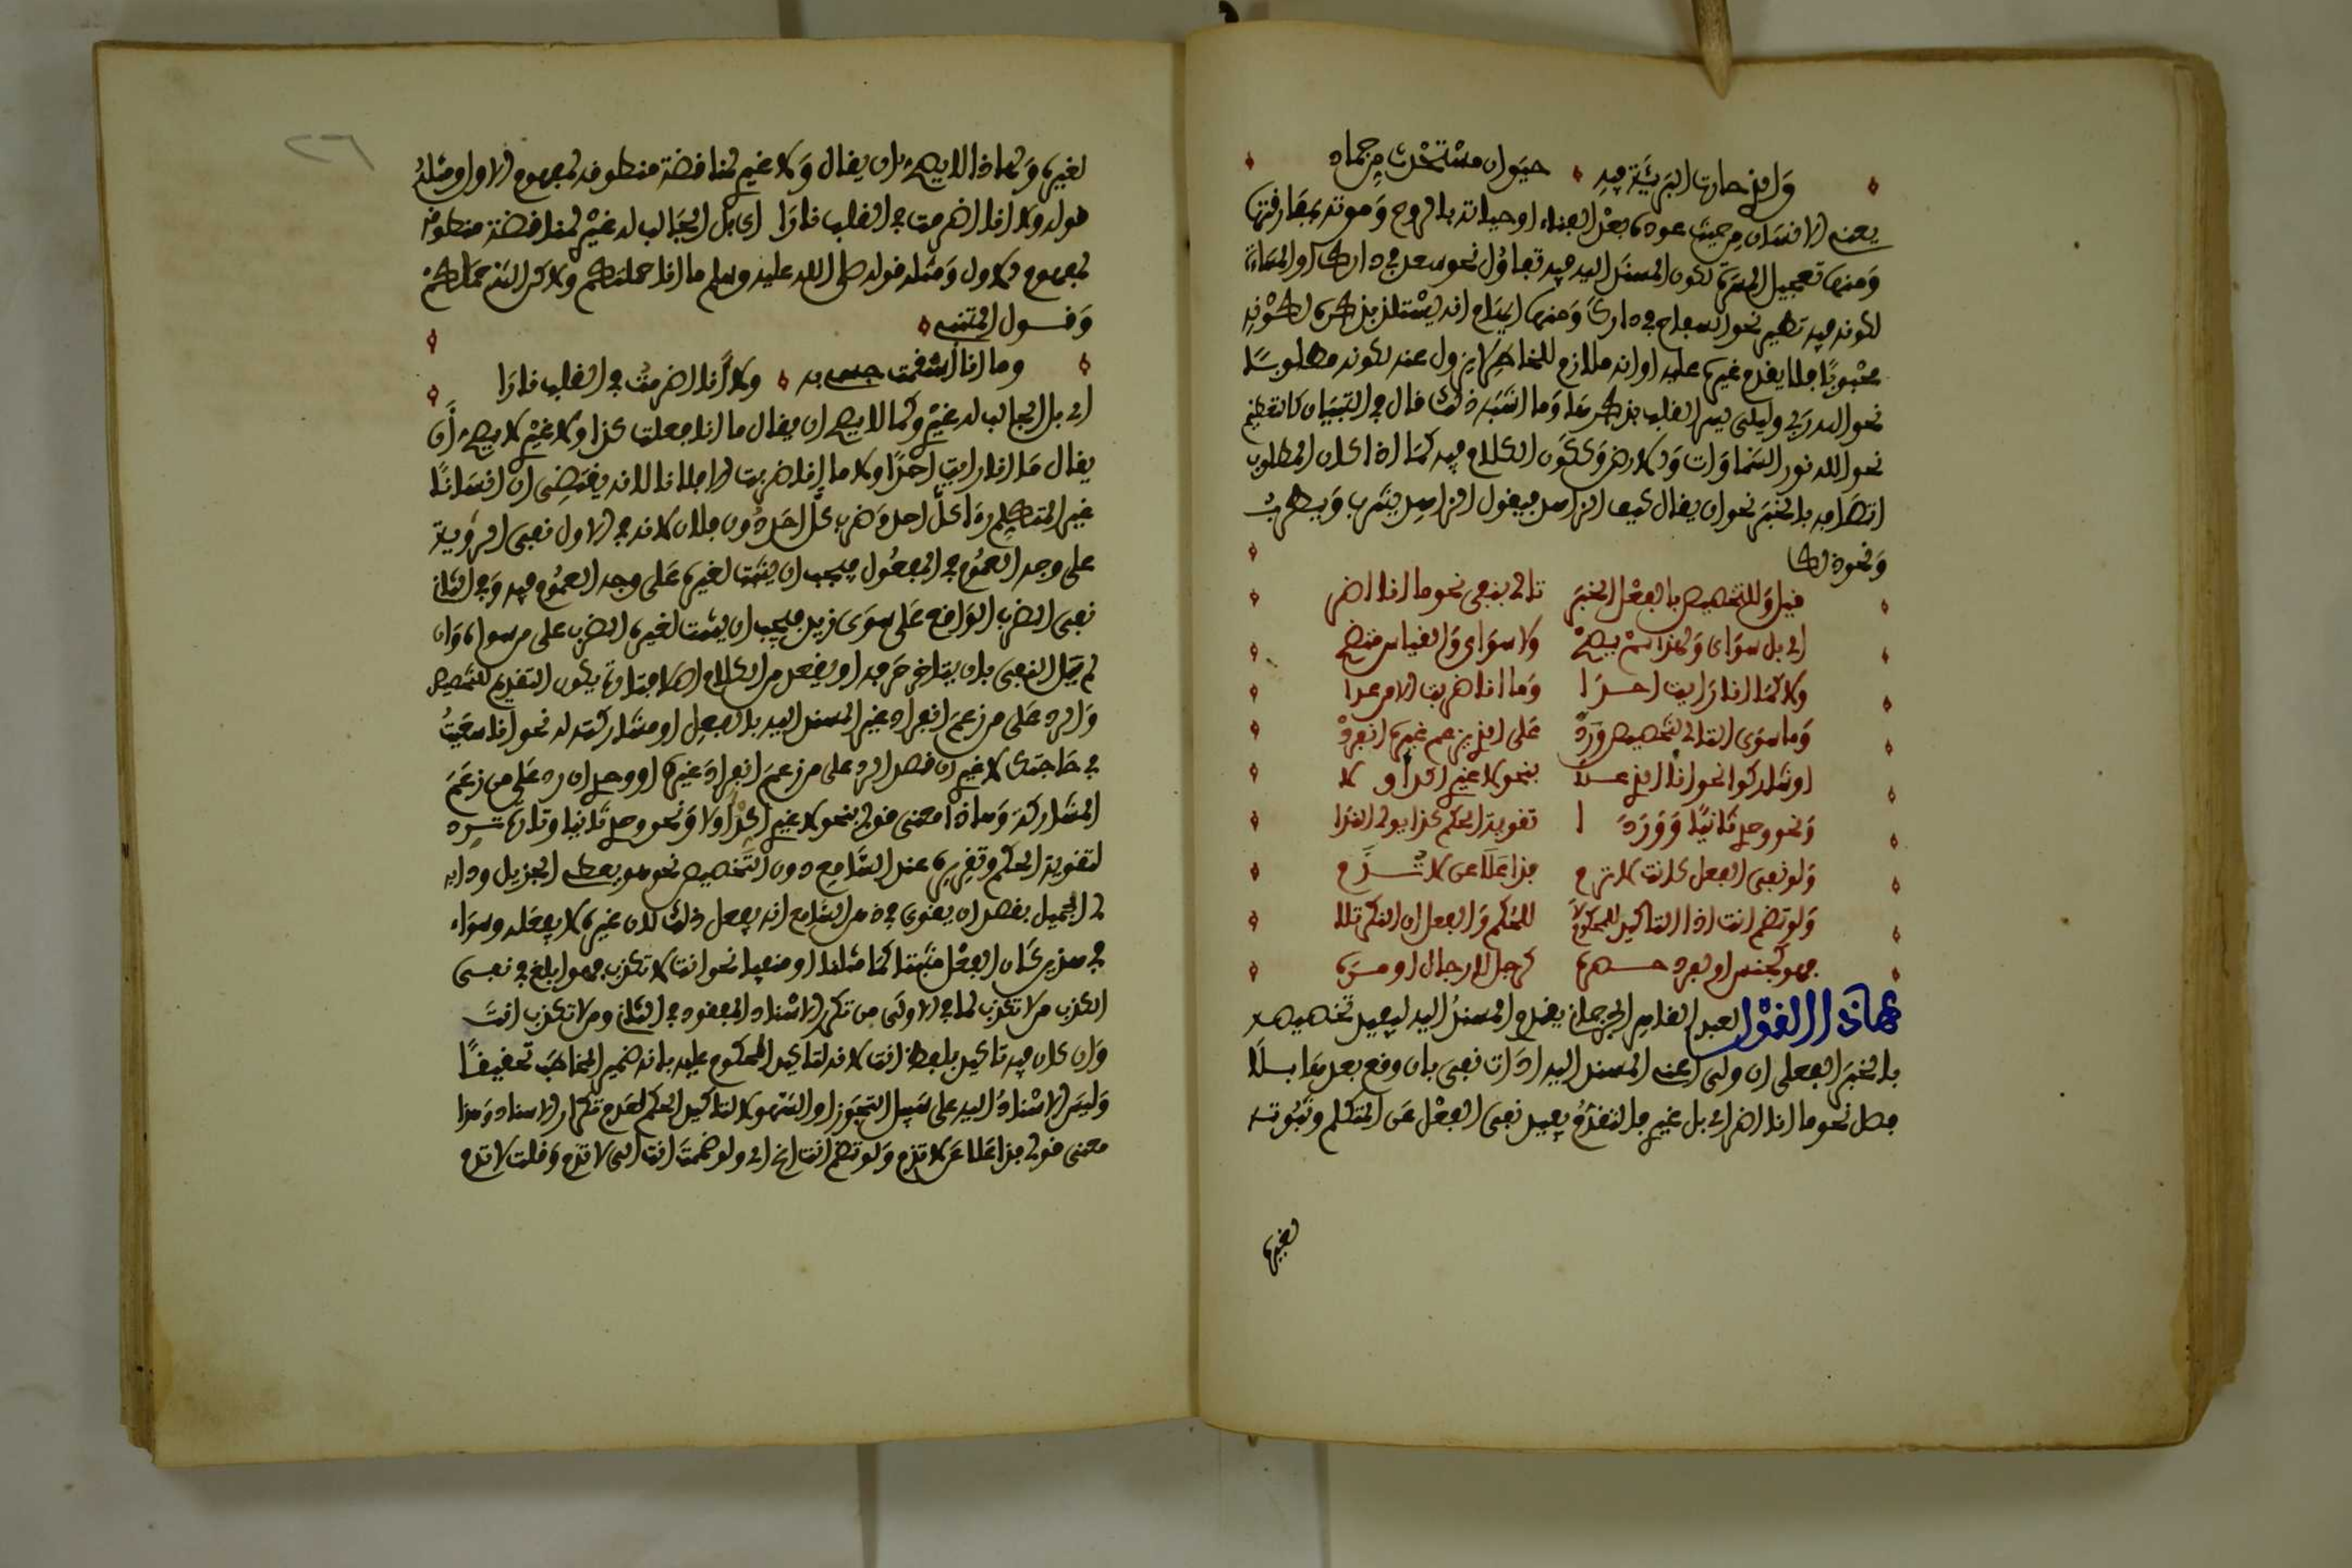 والذي حارت البرية فيه حيوان مستحدث من جماد
يعني الانسان من حيث عوده بعد الفناء او حياته بالروح وموته بمفارقتها
ومنها تعجيل المسرة لكون المسند اليه فيه تفاؤل نحو سعد في دارك او المساءة
لكونه فيه تطير نحو السفاح في دارك ومنها ايهام انه يستلذ بذكره لكونه
محبوبا فلا يقدم غيره عليه او انه ملازم للخاطر لا يزول عنه لكونه مطلوبا
نحو الله ربي وليلى يسر القلب بذكرها وما اشبه ذلك قال في التبيان كالتعظيم
نحو الله نور السماوات والارض وككون الكلام فيه كما اذا كان المطلوب
اتصافه بالخبر نحو ان يقال كيف الزاهد فيقول الزاهد يشرب ويطرب
ونحو ذلك
قيل وللتخصيص بالفعل الخبر تالى بنفي نحو ما انا اضر
اي بل سواي ولهذا لم يصح ولا سواي والقياس متضح
ولا كما انا رايت احدا وما انا ضربت الا من عدا
وما سوى التالى لتخصيص ورد على الذي زعم غيره انفرد
او شاركوا نحو انا الذي علا بنحو لا غيري اكد او لا
ونحو وحدي ثانيا وورد ا تقوية الحكم كذا يولى الندا
ولو نفى الفعل كانت لا تذم فذا علا عن لا تذم
ولو تضم انت اذ التاكيد للمحكوم لا للحكم والفعل ان النكر تلا
فهو لجنس او لفرد حصره كرجل لا رجال او مره
هاذا القول لعبد القاهر الجرجاني يقدم المسند اليه ليفيد تخصيصه
بالخبر الفعلي ان ولى اعني المسند اليه ادات نفي بان وقع بعدها بلا
فصل نحو ما انا اضر اي بل غيري فالتقدم يفيد نفي الفعل عن المتكلم وثبوته
لغيره
لغيره ولهاذا لا يصح ان يقال ولا غيري لمناقضة منطوقه لمفهوم الاول ومثله
قوله ولا انا اضرمت في القلب نارا اي بل الجالب له غيري لمناقضة منطوقه
لمفهوم الاول ومثله قوله صلى الله عليه وسلم ما انا حملتكم ولاكن الله حملكم
وقول المتنبي
وما انا اسقمت جسمي به ولا انا اضرمت في القلب نارا
اي بل الجالب له غيري وكما لا يصح ان يقال ما انا فعلت كذا ولا غيري لا يصح ان
يقال ما انا رايت احدا ولا ما انا ضربت الا فلانا لانه يقتضي ان انسانا
غير المتكلم راى كل احد وضرب كل احد دون فلان لانه في الاول نفى الرؤية
على وجه العموم في المفعول فيجب ان يثبت لغيره على وجه العموم فيه وفي الثاني
نفى الضرب الواقع على سوى زيد فيجب ان يثبت لغيره الضرب على من سواه وان
لم يتل النفي بان يتاخر حرفه او يفقد من الكلام اصلا فتارة يكون التقديم للتخصيص
والرد على من زعم انفراد غير المسند اليه بالفعل او مشاركته له نحو انا سعيت
في حاجتك لا غيري ان قصد الرد على من زعم انفراد غيره او وحدي ان رد على من زعم
المشاركة وهاذا معنى قولي بنحو لا غيري اكد او لا ونحو وحدي ثانيا وتارة يرد
لتقوية الحكم وتقريره عند السامع دون التخصيص نحو هو يعطي الجزيل ودابه
الجميل بقصد ان يقوى في ذهن السامع انه يفعل ذلك لا ان غيره لا يفعله وسواء
في هذين كان الفعل مثبتا كما مثلنا او منفيا نحو انت لا تكذب فهو ابلغ في نفي
الكذب من لا تكذب لما في الاولى من تكرر الاسناد المفقود في الثاني ومن لا تكذب انت
وان كان فيه تاكيد بلفظ انت لانه لتاكيد المحكوم عليه بانه ضمير المخاطب تحقيقا
وليس الاسناد اليه على سبيل التجوز او السهو لا لتاكيد الحكم لعدم تكرار الاسناد وهذا
معنى قولي فذا علا عن لا تذم ولو تضم انت الخ اي ولو ضممت انت الى لا تذم وقلت لا تذم